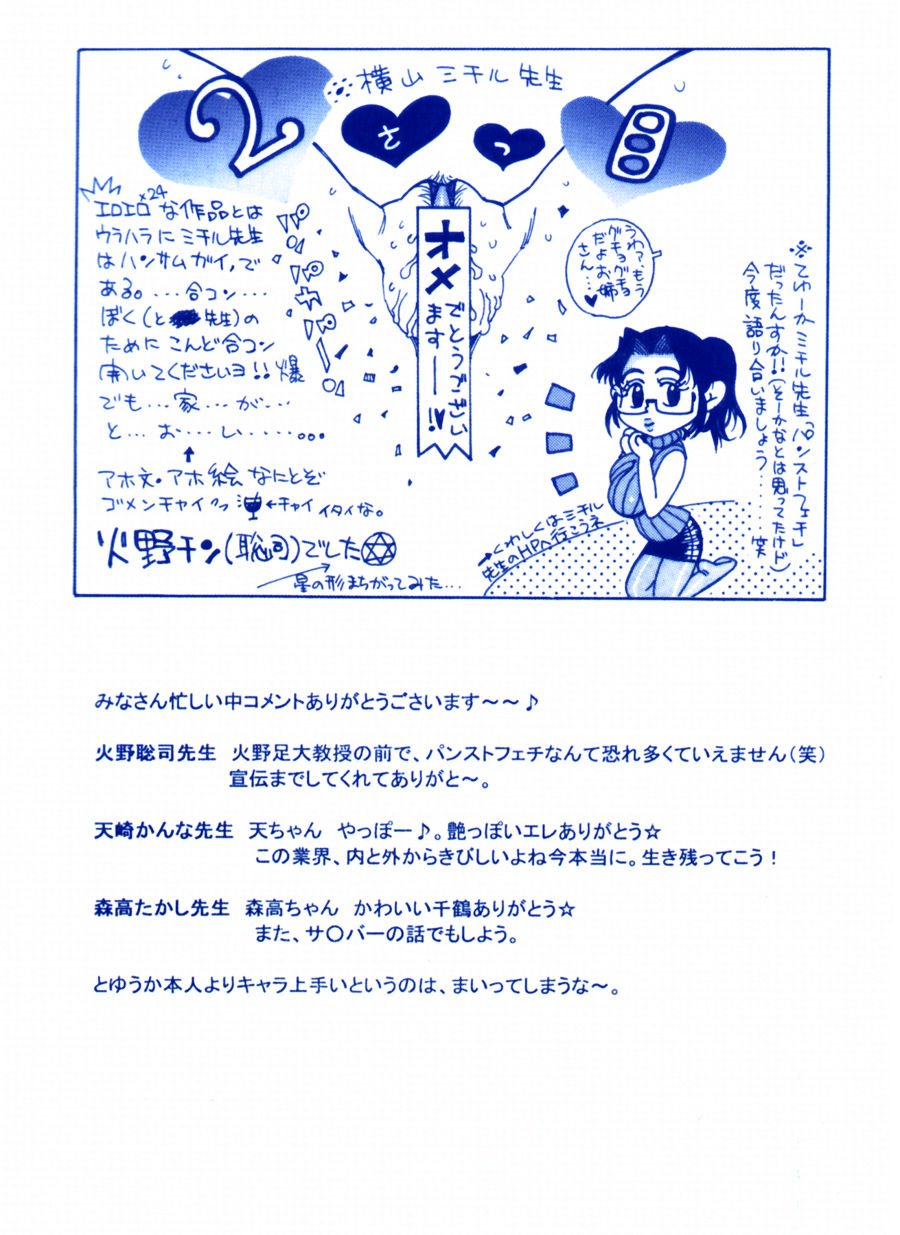 横山ミチル先生
2さつ目
エロエロ×24な作品とは
ウラハラにミチル先生
はハンサムガイ,で
ある。...合コン...
ぼく(と 先生)の
ためにこんど合コン
開いてくださいヨ!!爆
でも...家...が...
と...お...い.....。。。
アホ文・アホ絵 なにとぞ
ゴメンチャイクっ ←チャイ イタイな。
火野チン(聡司)でした✡
星の形まちがってみた...
オメ
でとうござい
ますー!!
うわァもう
グチョグチョ
だよお姉
さん...♥
※てゆーかミチル先生「パンストフェチ」
だったんすか!!(そーかなとは思ってたけド)
今度語り合いましょう....笑
→くわしくはミチル
先生のHPへ行こうネ
みなさん忙しい中コメントありがとうございます～～♪
火野聡司先生 火野足大教授の前で、パンストフェチなんて恐れ多くていえません(笑)
宣伝までしてくれてありがと～。
天崎かんな先生 天ちゃん やっぽー♪。艶っぽいエレありがとう☆
この業界、内と外からきびしいよね今本当に。生き残ってこう!
森高たかし先生 森高ちゃん かわいい千鶴ありがとう☆
また、サ〇バーの話でもしよう。
とゆうか本人よりキャラ上手いというのは、まいってしまうな～。